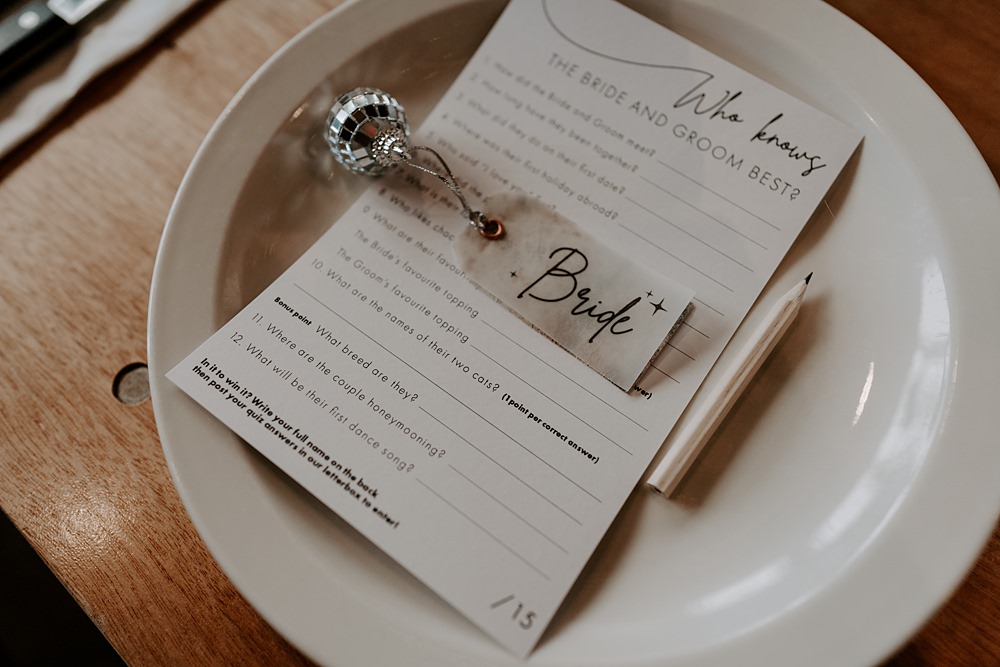 Who knows
THE BRIDE AND GROOM BEST?
1. How did the Bride and Groom meet?
2. How long have they been together?
3. What did they do on their first date?
4. Where was their first holiday abroad?
5. Who said "I love you"
What is their
8. Who likes choc
9. What are their favour
The Bride's favourite topping
The Groom's favourite topping
10. What are the names of their two cats? (1 point per correct answer)
Bonus point What breed are they?
11. Where are the couple honeymooning?
12. What will be their first dance song?
In it to win it? Write your full name on the back
then post your quiz answers in our letterbox to enter!
/15
Bride